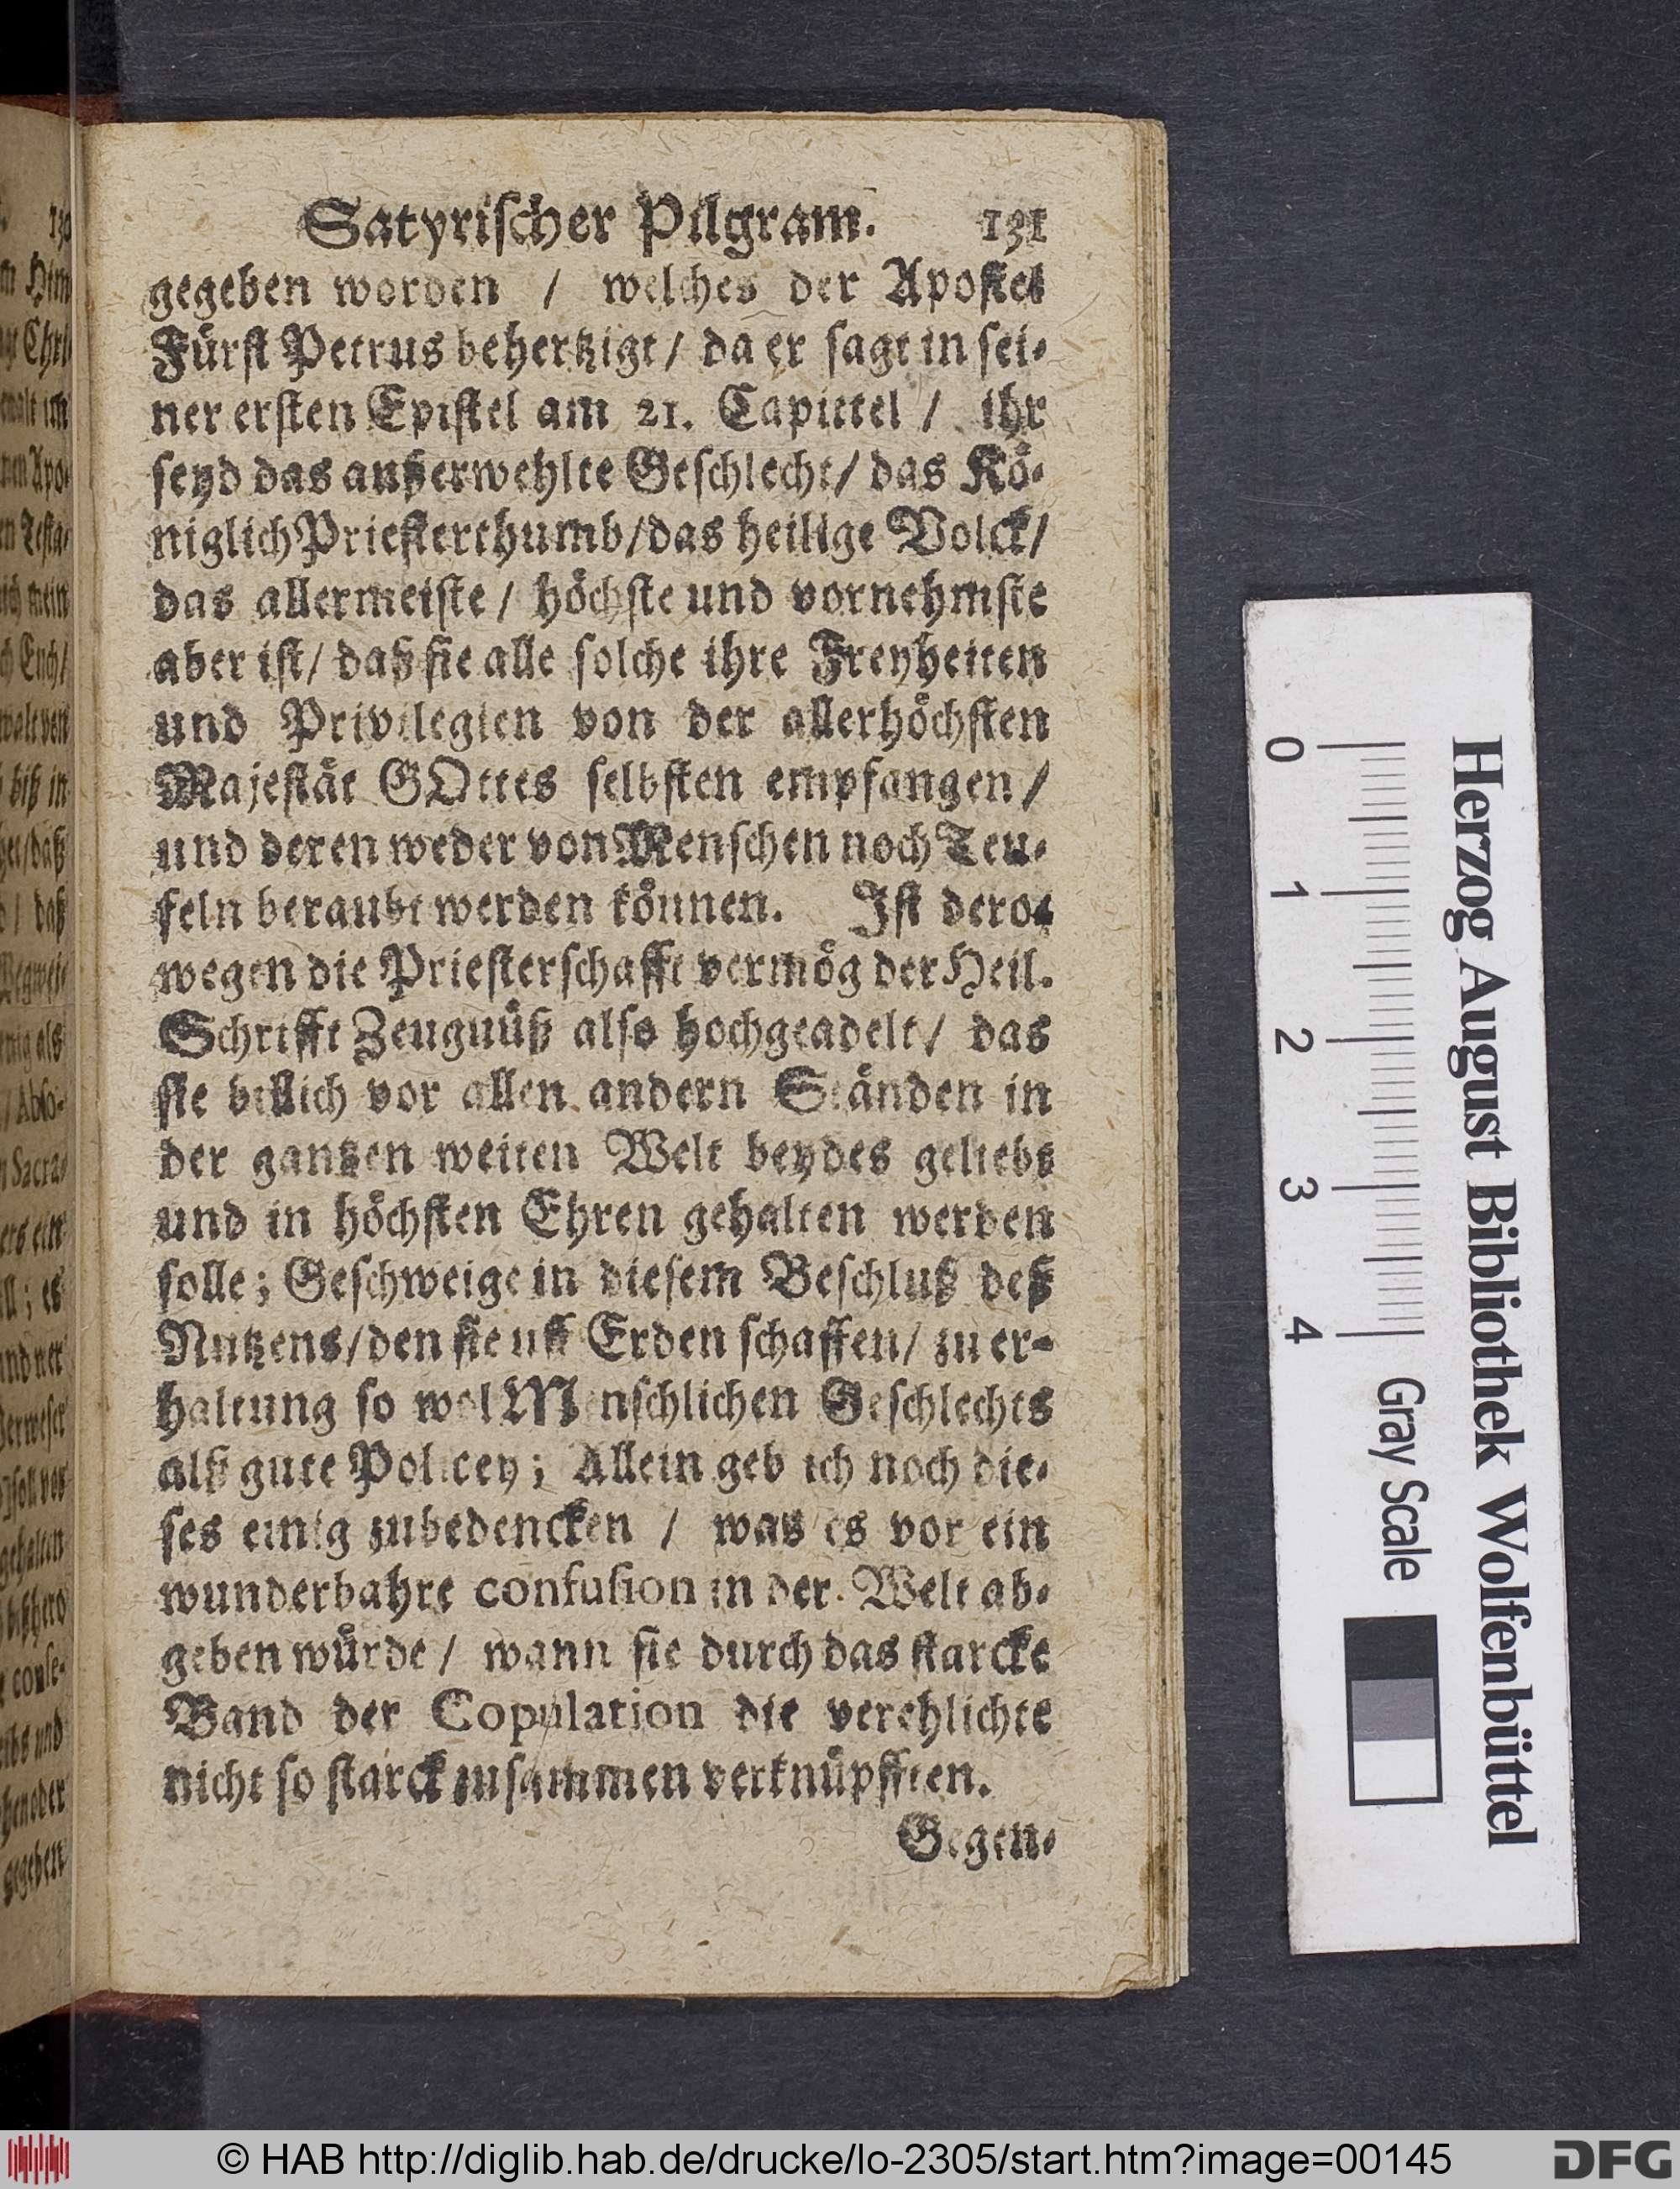 Satyrischer Pilgram. 131
gegeben worden / welches der Apostel
Fürst Petrus behertzigt / da er sagt in sei-
ner ersten Epistel am 21. Capittel / ihr
seyd das außerwehlte Geschlecht / das Kö-
niglich Priesterthumb / das heilige Volck /
das allermeiste / höchste und vornehmste
aber ist / daß sie alle solche ihre Freyheiten
und Privilegien von der allerhöchsten
Majestät GOttes selbsten empfangen /
und deren weder von Menschen noch Teu-
feln beraubt werden können. Ist dero-
wegen die Priesterschafft vermög der Heil.
Schrifft Zeugnüß also hochgeadelt / das
sie billich vor allen andern Ständen in
der gantzen weiten Welt beydes geliebt
und in höchsten Ehren gehalten werden
solle; Geschweige in diesem Beschluß deß
Nutzens / den sie uff Erden schaffen / zu er-
haltung so wol Menschlichen Geschlechts
alß gute Policey; Allein geb ich noch die-
ses einig zubedencken / was es vor ein
wunderbahre confusion in der Welt ab-
geben würde / wann sie durch das starcke
Band der Copulation die verehlichte
nicht so starck zusammen verknüpfften.
Gegen-
Herzog August Bibliothek Wolfenbüttel
0 1 2 3 4 Gray Scale
© HAB http://diglib.hab.de/drucke/lo-2305/start.htm?image=00145
DFG